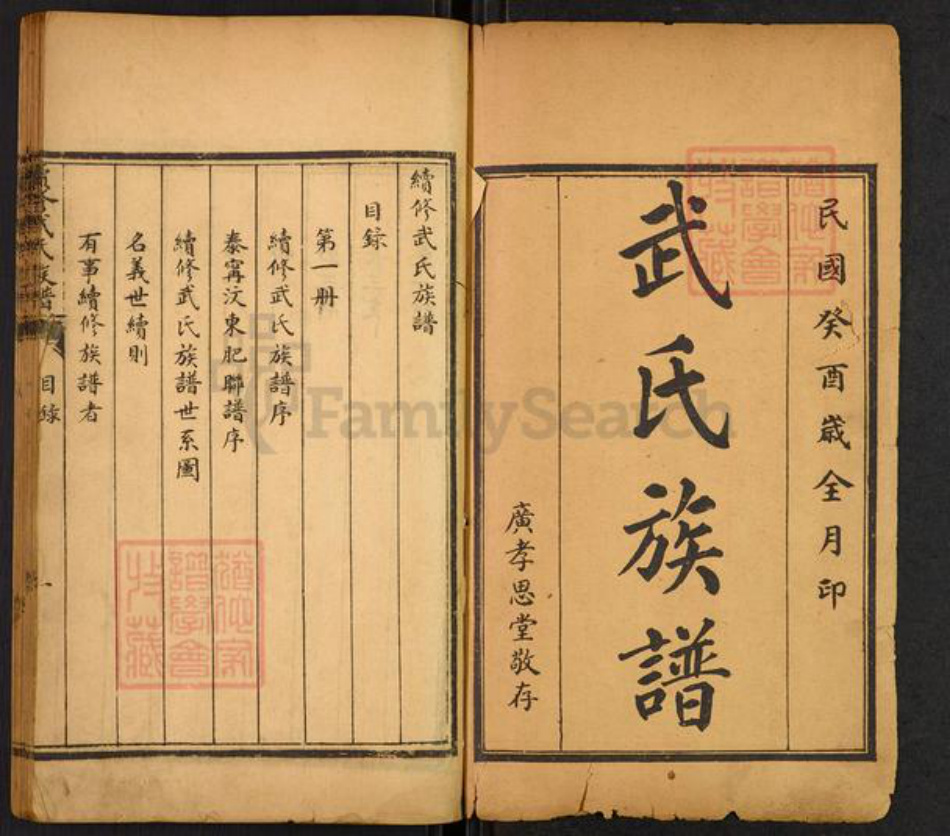 民國癸酉歲全月印
武氏族譜
廣孝思堂敬存
續修武氏族譜
目錄
第一册
續修武氏族譜序
泰甯汶東肥聯譜序
續修武氏族譜世系圖
名義世續則
有事續修族譜者
續修武氏族譜
目錄
一
FamilySearch
譜學會